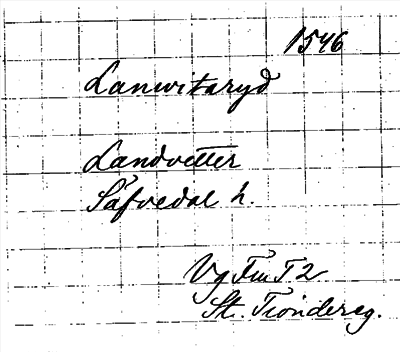 1546
Lanwitaryd
Landvetter
Säfvedal h.
Vg Fm T 2
St. Tiondereg.